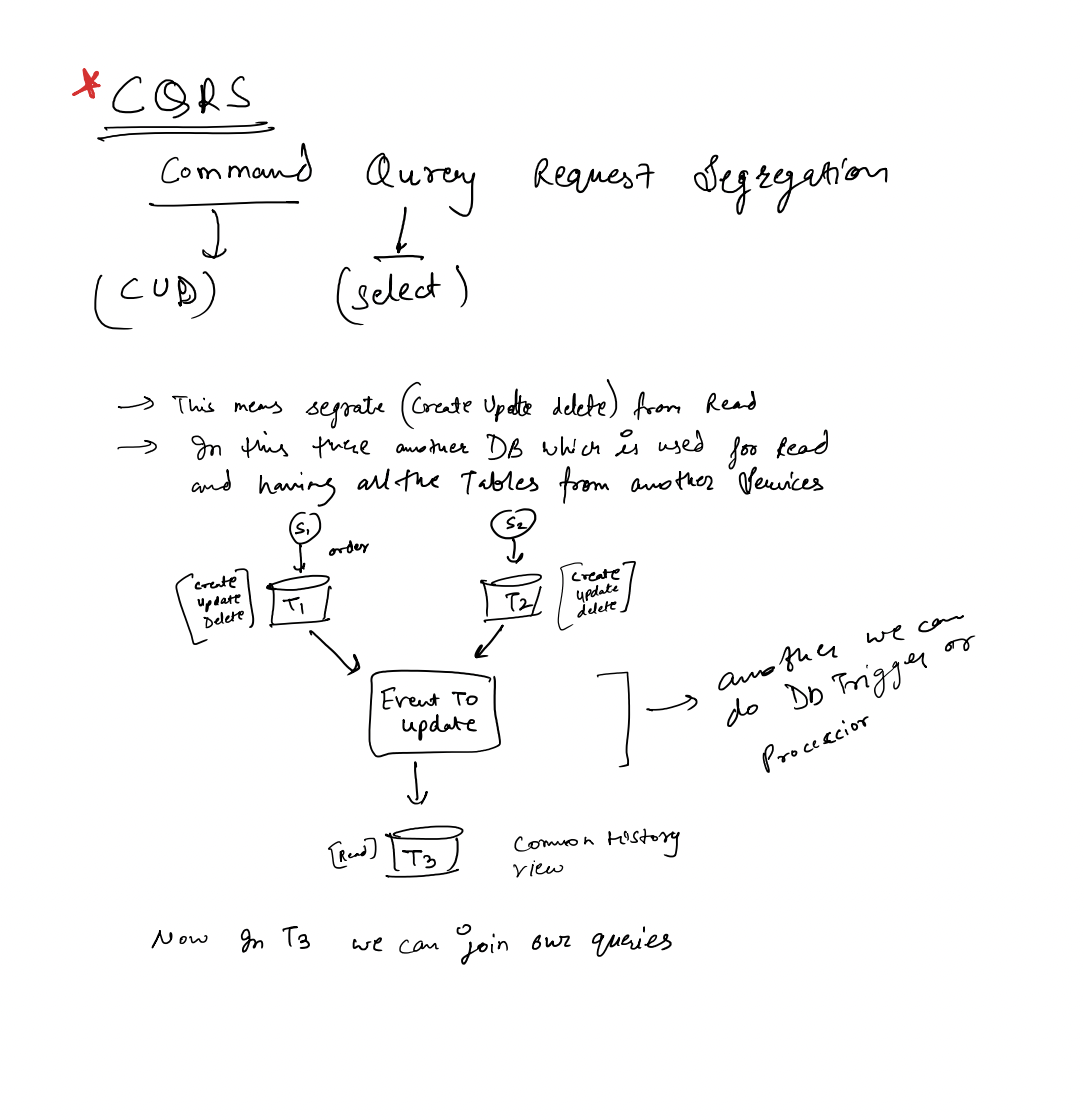 * CQRS
Command Qurey Request Segregation
(CUD) (select)
→ This means segrate (Create Update delete) from Read
→ In this there another DB which is used for Read
and having all the Tables from another Services
S1 S2
order
[create update Delete] T1 T2 [create update delete]
Event To
update
→ another we can
do DB Trigger or
[Read] T3 Common History
view
Now In T3 we can join our queries